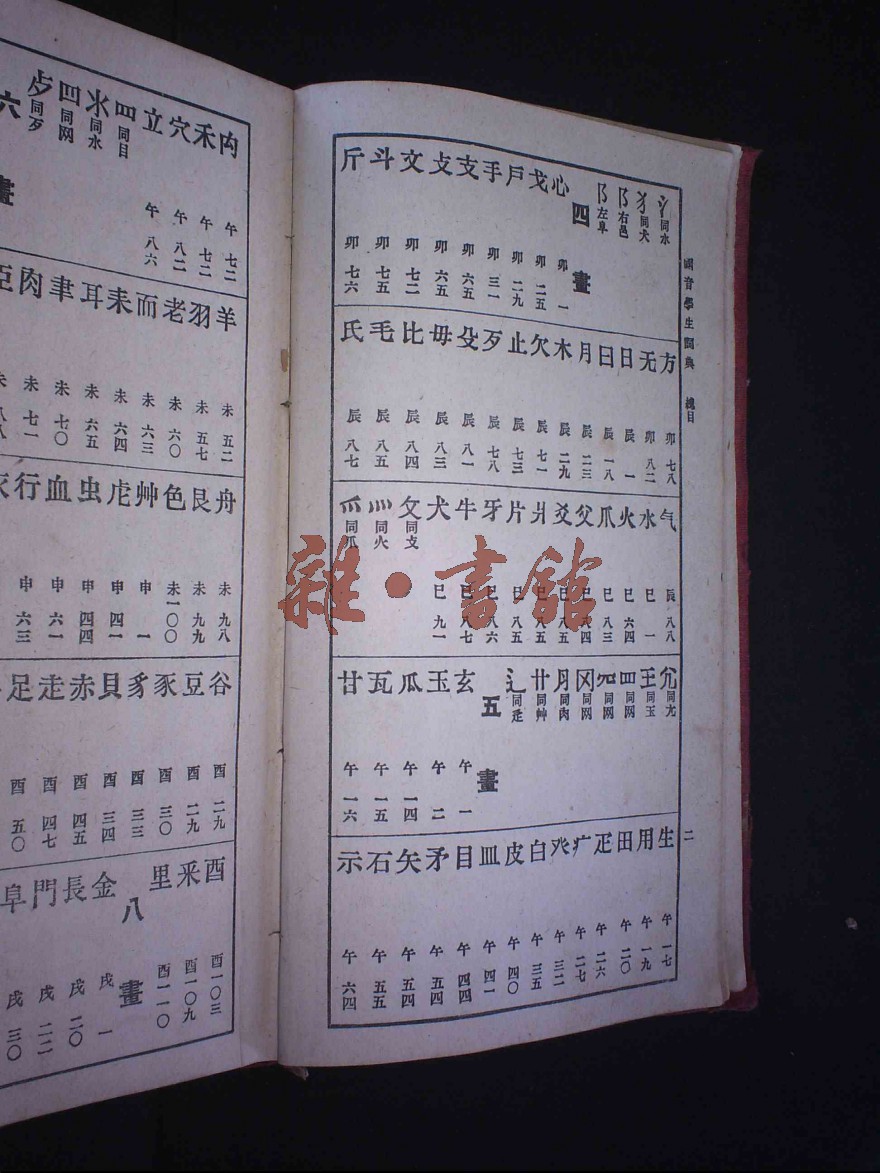 國音學生
總目
二
氵同水
犭同犬
阝右邑
阝左阜
四畫
心 卯 一
戈 卯 二五
戶 卯 二九
手 卯 三一
支 卯 六五
攴 卯 六五
文 卯 七二
斗 卯 七五
斤 卯 七六
方 卯 七八
无 卯 八二
日 辰 一
曰 辰 一八
月 辰 二三
木 辰 二九
欠 辰 七一
止 辰 七三
歹 辰 七八
殳 辰 八一
毋 辰 八三
比 辰 八四
毛 辰 八五
氏 辰 八七
气 辰 八八
水 巳 一
火 巳 六四
爪 巳 八三
父 巳 八四
爻 巳 八五
爿 巳 八五
片 巳 八五
牙 巳 八六
牛 巳 八七
犬 巳 九一
攵同支
灬同火
爫同爪
尣同尢
王同玉
罒同网
㓁同网
冈同网
月同肉
艹同艸
辶同辵
五畫
玄 午 一
玉 午 二
瓜 午 一四
瓦 午 一五
甘 午 一六
生 午 一七
用 午 一九
田 午 二〇
疋 午 二六
疒 午 二七
癶 午 三二
白 午 三五
皮 午 四〇
皿 午 四一
目 午 四四
矛 午 五四
矢 午 五四
石 午 五五
示 午 六四
禸 午 七二
禾 午 七二
穴 午 八二
立 午 八六
罒同目
氺同水
罒同网
歺同歹
六畫
羊 未 五二
羽 未 五七
老 未 六〇
而 未 六三
耒 未 六四
耳 未 六五
聿 未 七〇
肉 未 七一
臣 未 八八
舟 未 九八
艮 未 九九
色 未 一〇〇
艸 申 一
虍 申 四一
虫 申 四四
血 申 六一
行 申 六三
衣
谷 酉 二九
豆 酉 二九
豕 酉 三〇
豸 酉 三三
貝 酉 三四
赤 酉 四五
走 酉 四七
足 酉 五〇
酉 酉 一〇三
釆 酉 一〇九
里 酉 一一〇
八畫
金 戌 一
長 戌 二〇
門 戌 二二
阜 戌 三〇
雜·書館